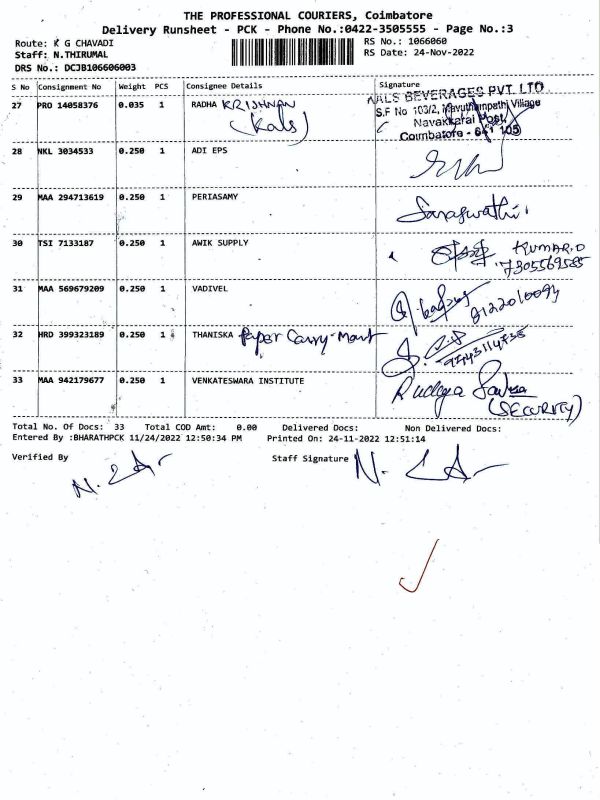 THE PROFESSIONAL COURIERS, Coimbatore
Delivery Runsheet - PCK - Phone No.:0422-3505555 - Page No.:3
Route: K G CHAVADI
RS No.: 1066060
Staff: N.THIRUMAL
RS Date: 24-Nov-2022
DRS No.: DCJB106606003
S No Consignment No Weight PCS Consignee Details Signature
27 PRO 14058376 0.035 1 RADHA KRISHNAN
(Kals)
KALS BEVERAGES PVT. LTD
S.F No 103/2, Mavuthampathi Village
Navakkarai Post,
Coimbatore - 641 105
28 NKL 3034533 0.250 1 ADI EPS
29 MAA 294713619 0.250 1 PERIASAMY Saraswathi
30 TSI 7133187 0.250 1 AWIK SUPPLY KUMAR.D
7305569585
31 MAA 569679209 0.250 1 VADIVEL
32 HRD 399323189 0.250 1 THANISKA Paper Carry-Mart
33 MAA 942179677 0.250 1 VENKATESWARA INSTITUTE
(SECURITY)
Total No. Of Docs: 33 Total COD Amt: 0.00 Delivered Docs: Non Delivered Docs:
Entered By :BHARATHPCK 11/24/2022 12:50:34 PM Printed On: 24-11-2022 12:51:14
Verified By Staff Signature